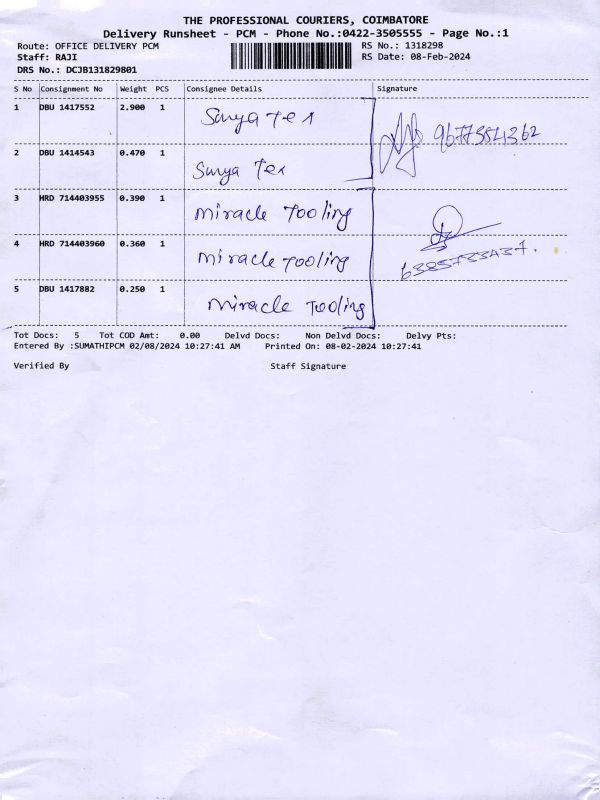 THE PROFESSIONAL COURIERS, COIMBATORE
Delivery Runsheet - PCM - Phone No.:0422-3505555 - Page No.:1
Route: OFFICE DELIVERY PCM RS No.: 1318298
Staff: RAJI RS Date: 08-Feb-2024
DRS No.: DCJB131829801
S No Consignment No Weight PCS Consignee Details Signature
1 DBU 1417552 2.900 1 Surya Tex
9677354362
2 DBU 1414543 0.470 1 Surya Tex
3 HRD 714403955 0.390 1 Miracle Tooling
4 HRD 714403960 0.360 1 Miracle Tooling
6385733437.
5 DBU 1417882 0.250 1 Miracle Tooling
Tot Docs: 5 Tot COD Amt: 0.00 Delvd Docs: Non Delvd Docs: Delvy Pts:
Entered By :SUMATHIPCM 02/08/2024 10:27:41 AM Printed On: 08-02-2024 10:27:41
Verified By Staff Signature